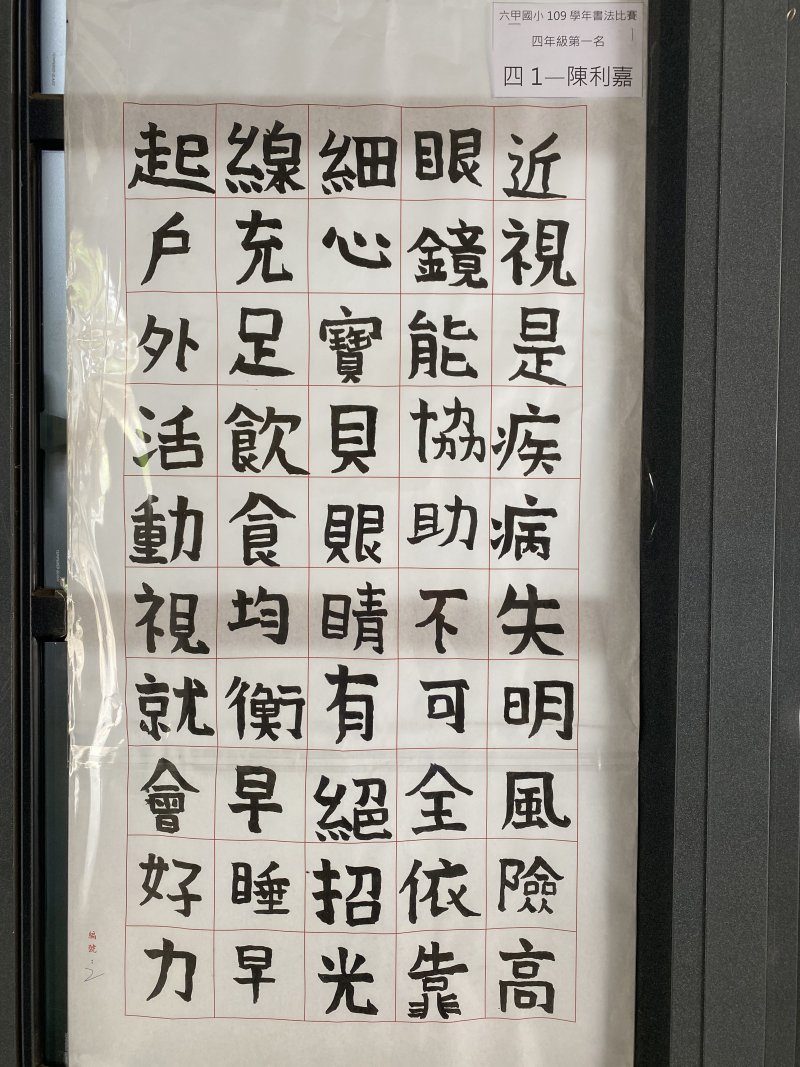 六甲國小 109 學年書法比賽
四年級第一名
四 1—陳利嘉
近視是疾病失明風險高
眼鏡能協助不可全依靠
細心寶貝眼睛有絕招光
線充足飲食均衡早睡早
起戶外活動視就會好力
編號：2